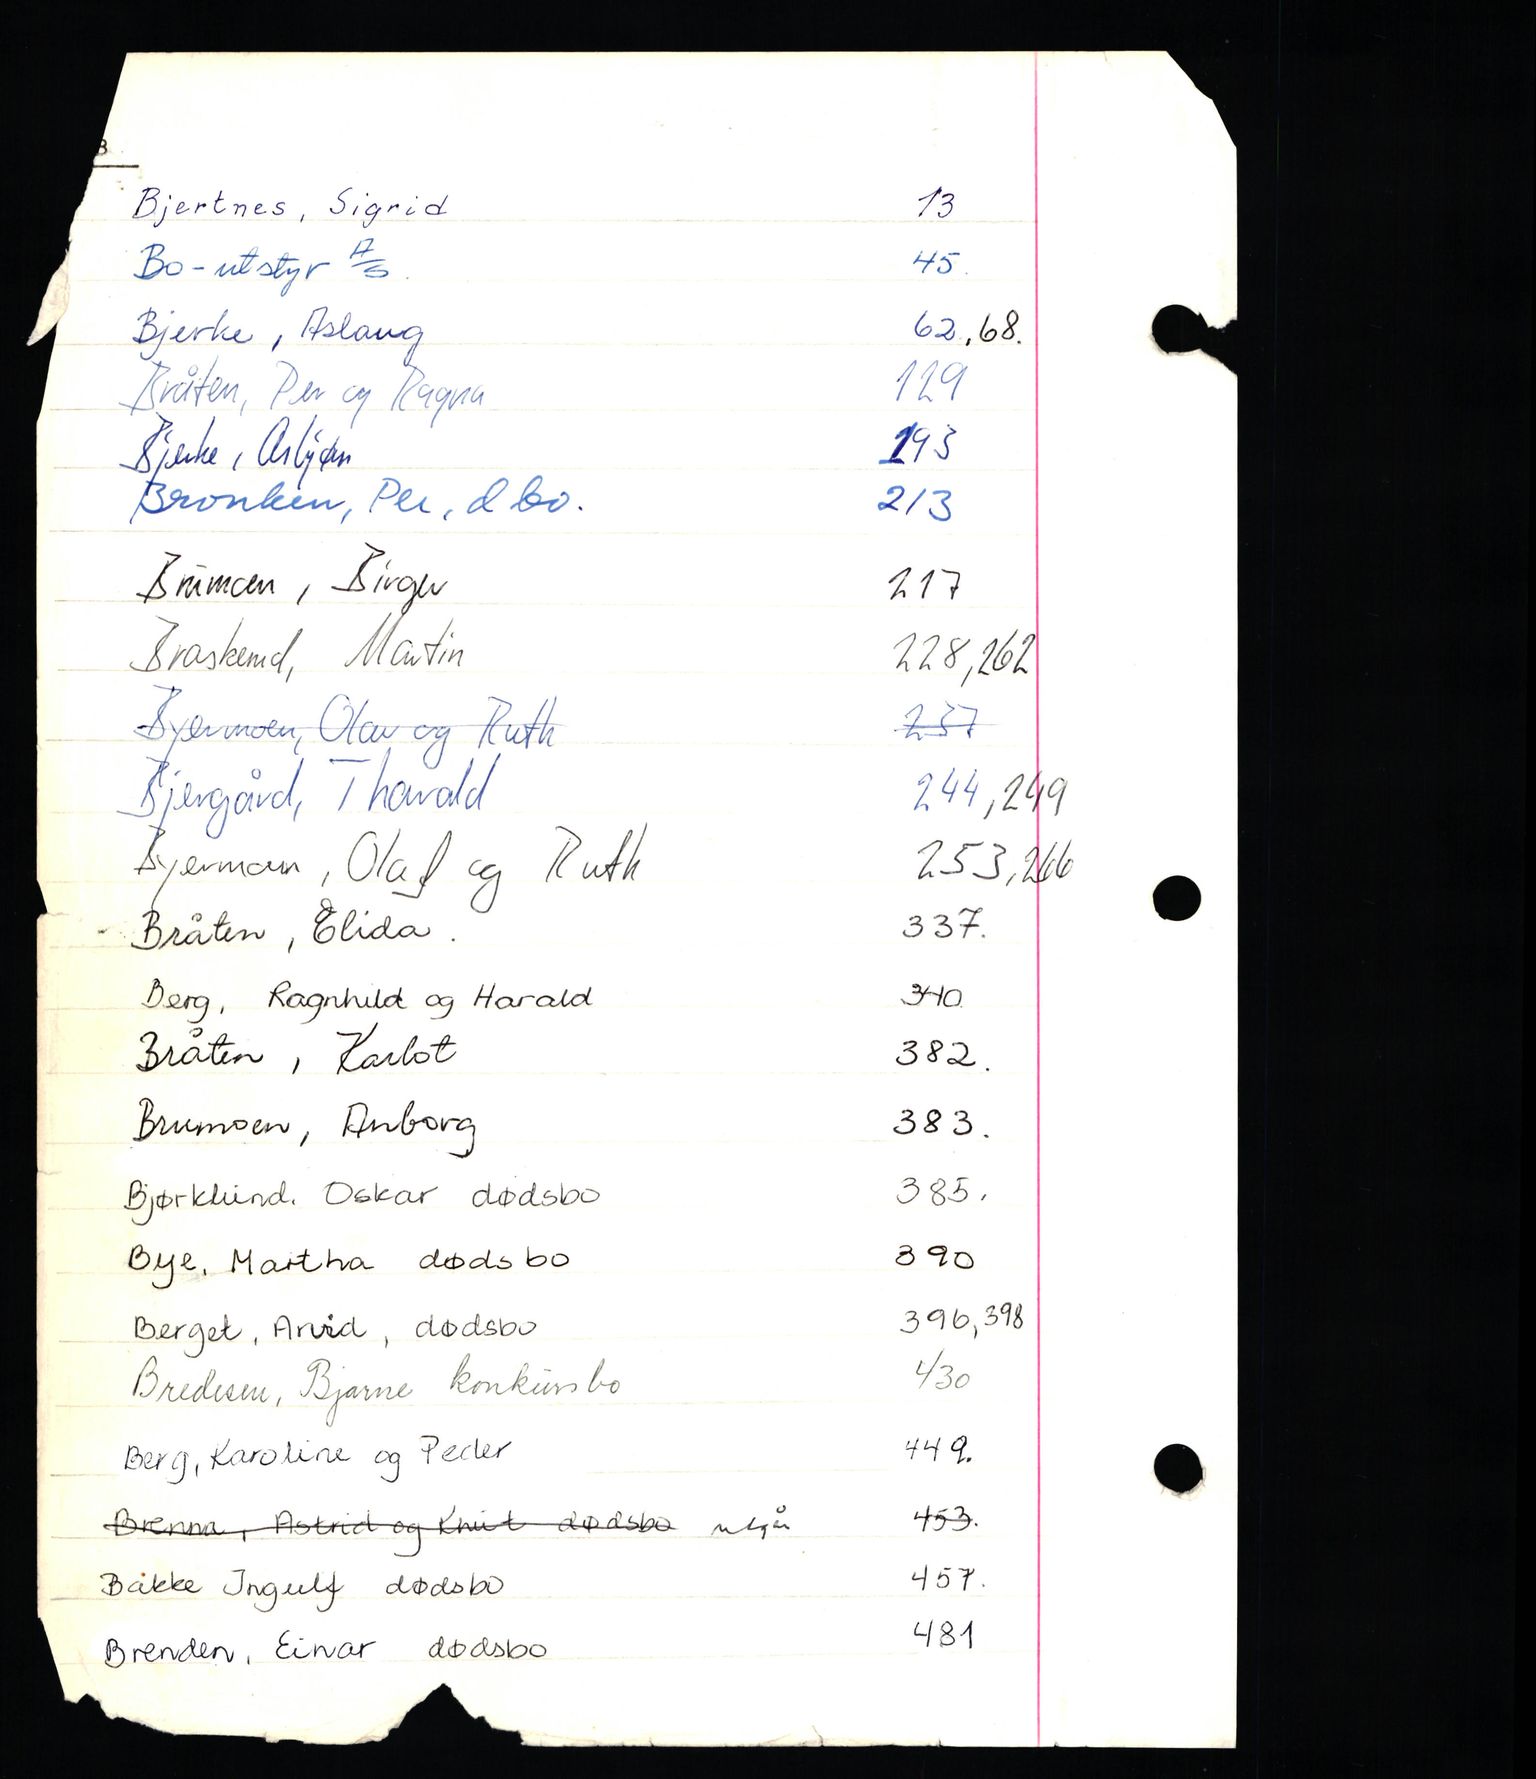 B
Bjertnes, Sigrid 13
Bo-utstyr A/S. 45.
Bjerke, Aslaug 62,68.
Bråten, Per og Ragna 129
Bjerke, Asbjørn 193
Bronken, Per, d bo. 213
Brumoen, Birger 217
Braskerud, Martin 228,262
Byermoen, Olav og Ruth 237
Bjergård, Thorvald 244,249
Byermoen, Olaf og Ruth 253,266
Bråten, Elida. 337.
Berg, Ragnhild og Harald 340
Bråten, Karlot 382.
Brumoen, Anborg 383.
Bjørklund. Oskar dødsbo 385.
Bye, Martha dødsbo 390
Berget, Arvid, dødsbo 396,398
Bredesen, Bjarne konkursbo 430
Berg, Karoline og Peder 449.
Brenna, Astrid og Knut dødsbo utgår 453.
Bakke Ingulf dødsbo 457.
Brenden, Einar dødsbo 481